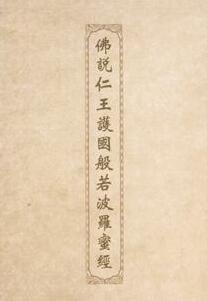 佛説仁王護國般若波羅蜜經